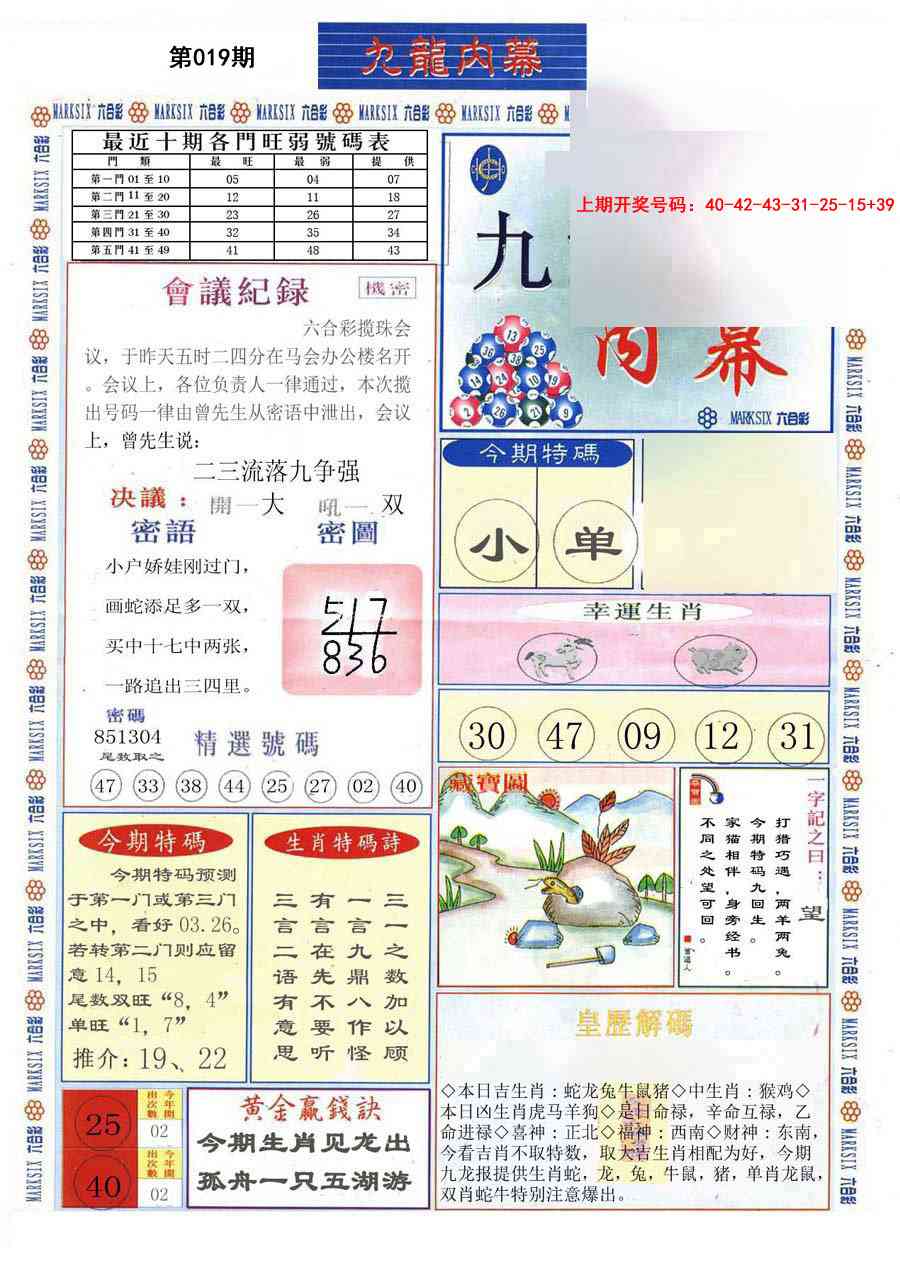 第019期
九龍内幕
MARKSIX 六合彩 MARKSIX 六合彩 MARKSIX 六合彩 MARKSIX 六合彩 MARKSIX 六合彩
最近十期各門旺弱號碼表
門 類 最 旺 最 弱 提 供
第一門 01 至 10 05 04 07
第二門 11 至 20 12 11 18
第三門 21 至 30 23 26 27
第四門 31 至 40 32 35 34
第五門 41 至 49 41 48 43
上期开奖号码：40-42-43-31-25-15+39
九
内幕
MARKSIX 六合彩
會議紀録
機密
六合彩揽珠会
议，于昨天五时二四分在马会办公楼名开
。会议上，各位负责人一律通过，本次揽
出号码一律由曾先生从密语中泄出，会议
上，曾先生说：
二三流落九争强
决議：開一大 吼一 双
密語 密圖
小户娇娃刚过门，
画蛇添足多一双，
买中十七中两张，
一路追出三四里。
517
836
密碼
851304
尾数取之
精選號碼
47 33 38 44 25 27 02 40
今期特碼
小 单
幸運生肖
30 47 09 12 31
藏寶圖
一字記之曰：望
打猎巧遇，两羊两兔。
今期特码九回生。
家猫相伴，身旁经书。
不同之处望可回。
今期特碼
今期特码预测
于第一门或第三门
之中，看好 03.26。
若转第二门则应留
意 14，15
尾数双旺“8，4”
单旺“1，7”
推介：19、22
生肖特碼詩
三一之数加以顾
一言九鼎八作怪
有在先不要听
三言二语有意思
皇歷解碼
◇本日吉生肖：蛇龙兔牛鼠猪◇中生肖：猴鸡◇
本日凶生肖虎马羊狗◇是日命禄，辛命互禄，乙
命进禄◇喜神：正北◇福神：西南◇财神：东南，
今看吉肖不取特数，取大吉生肖相配为好，今期
九龙报提供生肖蛇，龙，兔，牛鼠，猪，单肖龙鼠，
双肖蛇牛特别注意爆出。
25 今年開出次數 02
40 今年開出次數 02
黄金贏錢訣
今期生肖见龙出
孤舟一只五湖游